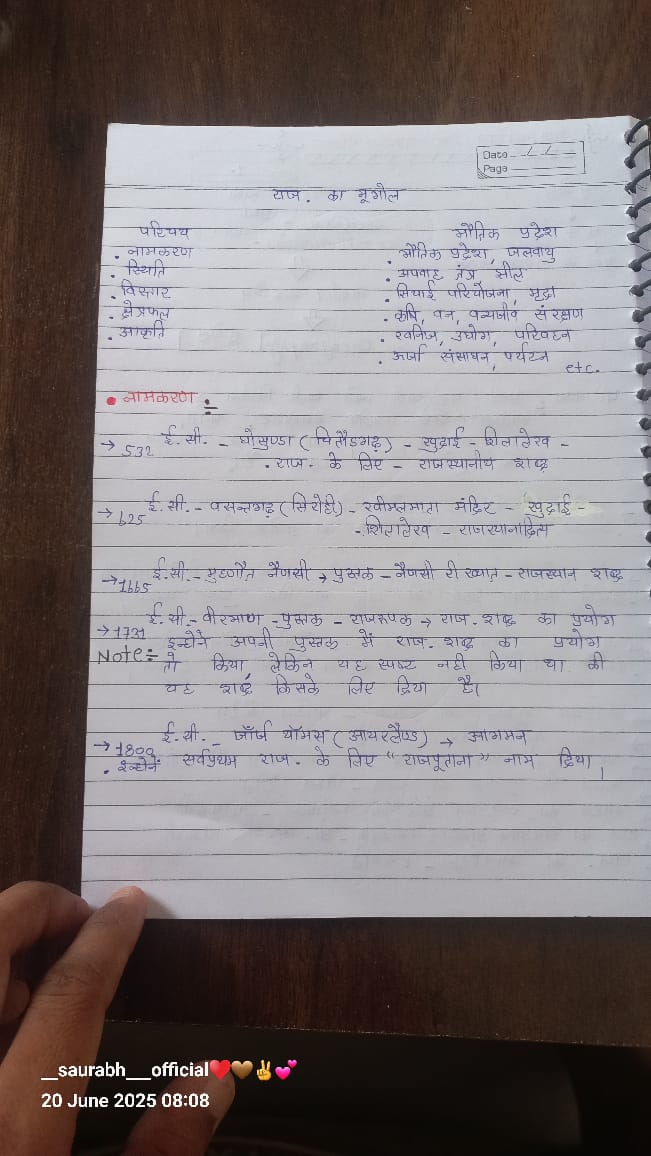 Date / /
Page
राज. का भूगोल
परिचय
. नामकरण
. स्थिति
. विस्तार
. क्षेत्रफल
. आकृति
भौतिक प्रदेश
. भौतिक प्रदेश, जलवायु
. अपवाह तंत्र झील
. सिचाई परियोजना, मृदा
. कृषि, वन, वन्यजीव संरक्षण
. खनिज, उघोग, परिवहन
. ऊर्जा संसाधन, पर्यटन
etc.
• नामकरण :-
→ 532 ई.सी. - घोसुण्डा (चितौडगढ़) - खुदाई - शिलालेख -
. राज. के लिए - राजस्थानीय शब्द
→ 625 ई.सी. - वसन्तगढ़ (सिरोही) - खीमलमाता मंदिर - खुदाई -
- शिलालेख - राजस्थानादित्य
→ 1665 ई.सी. - मुहणौत नैणसी → पुस्तक - नैणसी री ख्यात - राजस्थान शब्द
→ 1731 ई.सी. - वीरभाण - पुस्तक - राजरूपक → राज. शब्द का प्रयोग
Note :- इन्होने अपनी पुस्तक में राज. शब्द का प्रयोग
तो किया, लेकिन यह स्पष्ट नही किया था की
यह शब्द किसके लिए दिया है।
→ 1800 ई.सी. - जॉर्ज थॉमस (आयरलैण्ड) → आगमन
. इन्होनें सर्वप्रथम राज. के लिए "राजपूताना" नाम दिया।
__saurabh__official❤️🤎✌️💕
20 June 2025 08:08